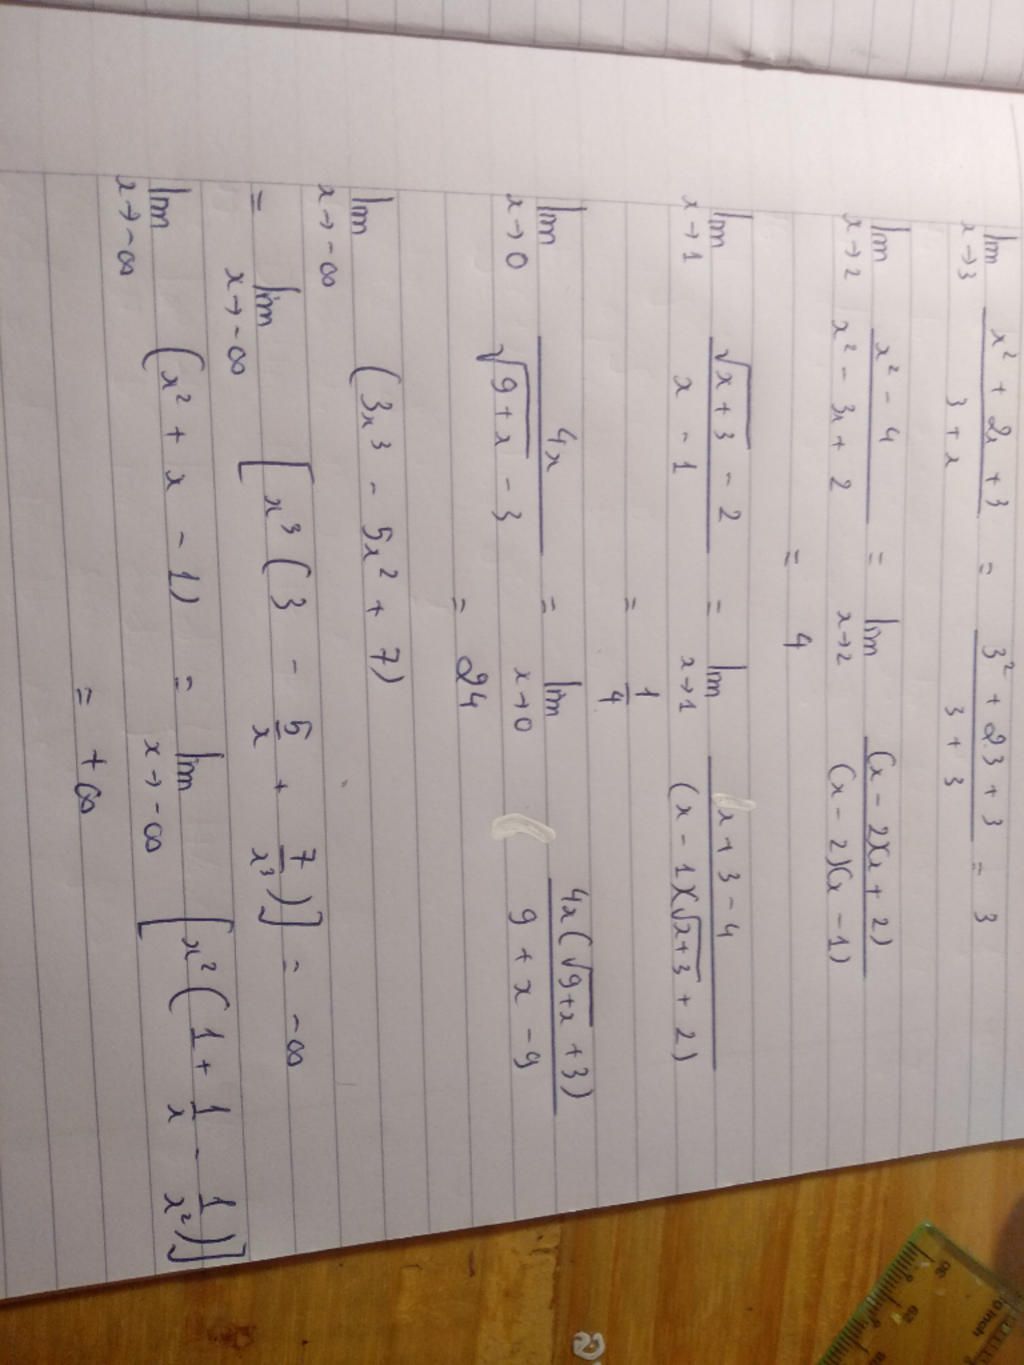 lim x→3 (x² + 2x + 3)/(3 + x) = (3² + 2.3 + 3)/(3 + 3) = 3
lim x→2 (x² - 4)/(x² - 3x + 2) = lim x→2 (x - 2)(x + 2)/(x - 2)(x - 1)
= 4
lim x→1 (√(x + 3) - 2)/(x - 1) = lim x→1 (x + 3 - 4)/((x - 1)(√(x + 3) + 2))
= 1/4
lim x→0 4x/(√(9 + x) - 3) = lim x→0 4x(√(9 + x) + 3)/(9 + x - 9)
= 24
lim x→-∞ (3x³ - 5x² + 7)
= lim x→-∞ [x³(3 - 5/x + 7/x³)] = -∞
lim x→-∞ (x² + x - 1) = lim x→-∞ [x²(1 + 1/x - 1/x²)]
= +∞
30
29
inch